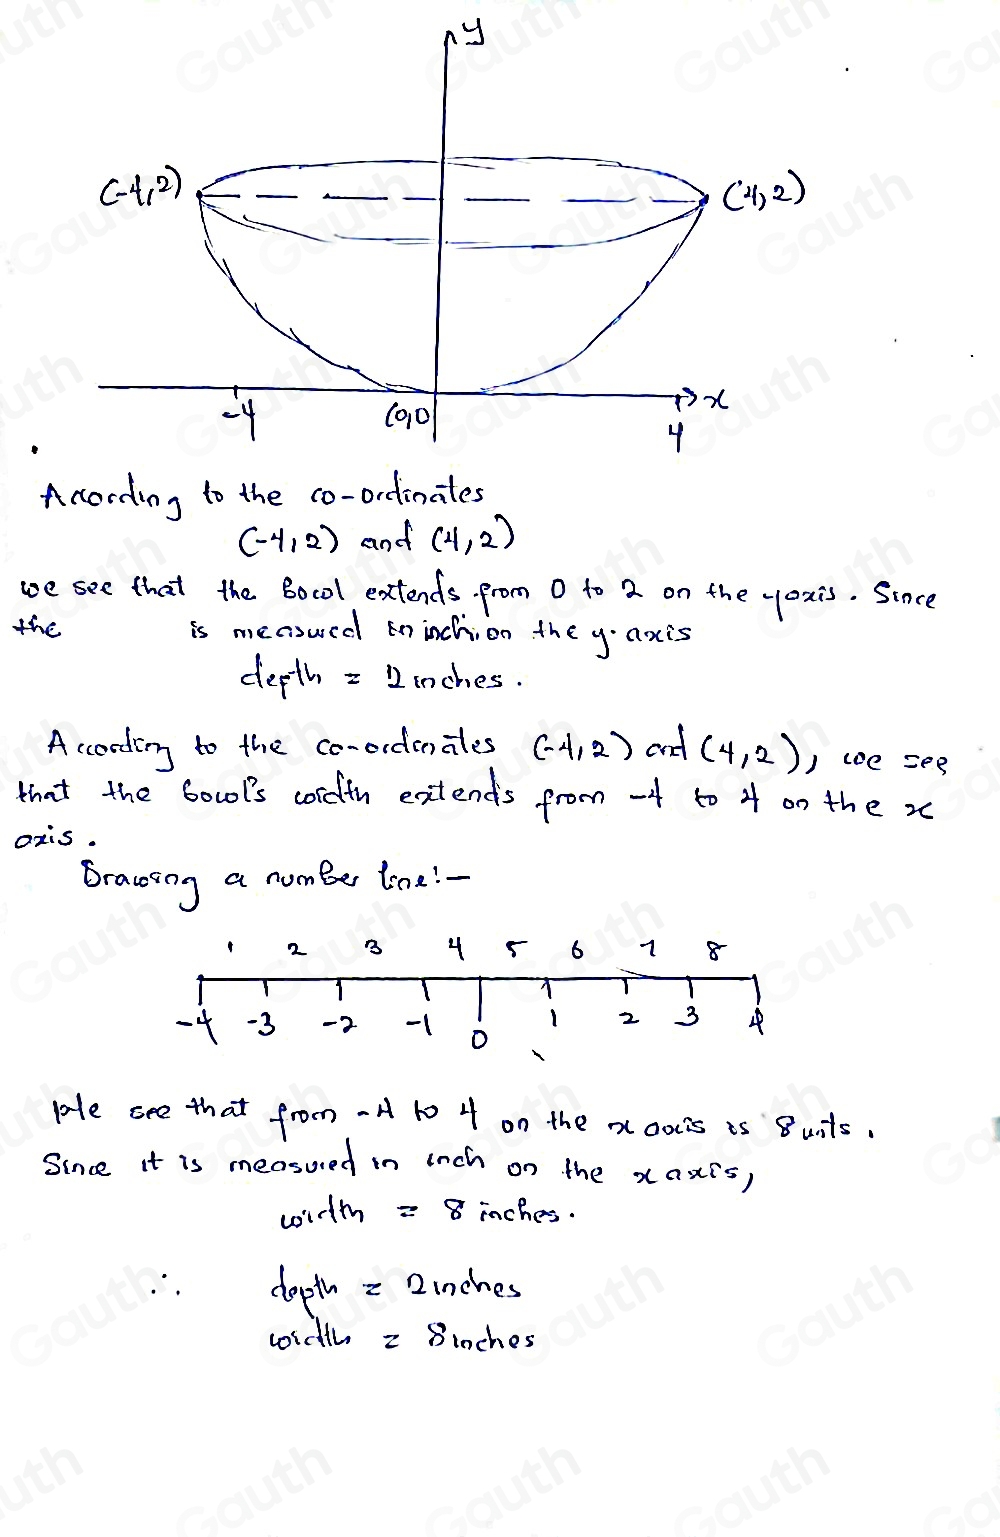 y
(-4,2)
(4,2)
-4
(0,0
x
4
According to the co-ordinates
(-4,2) and (4,2)
we see that the Bowl extends from 0 to 2 on the yaxis. Since
the is measured in inch on the y-axis
depth = 2 inches.
According to the co-ordinates (-4,2) and (4,2), we see
that the bowl's width extends from -4 to 4 on the x
axis.
Drawing a number line:-
1 2 3 4 5 6 7 8
-4 -3 -2 -1 0 1 2 3 4
We see that from -4 to 4 on the x axis is 8 units.
Since it is measured in inch on the x axis,
width = 8 inches.
∴ depth = 2 inches
width = 8 inches
Gauth